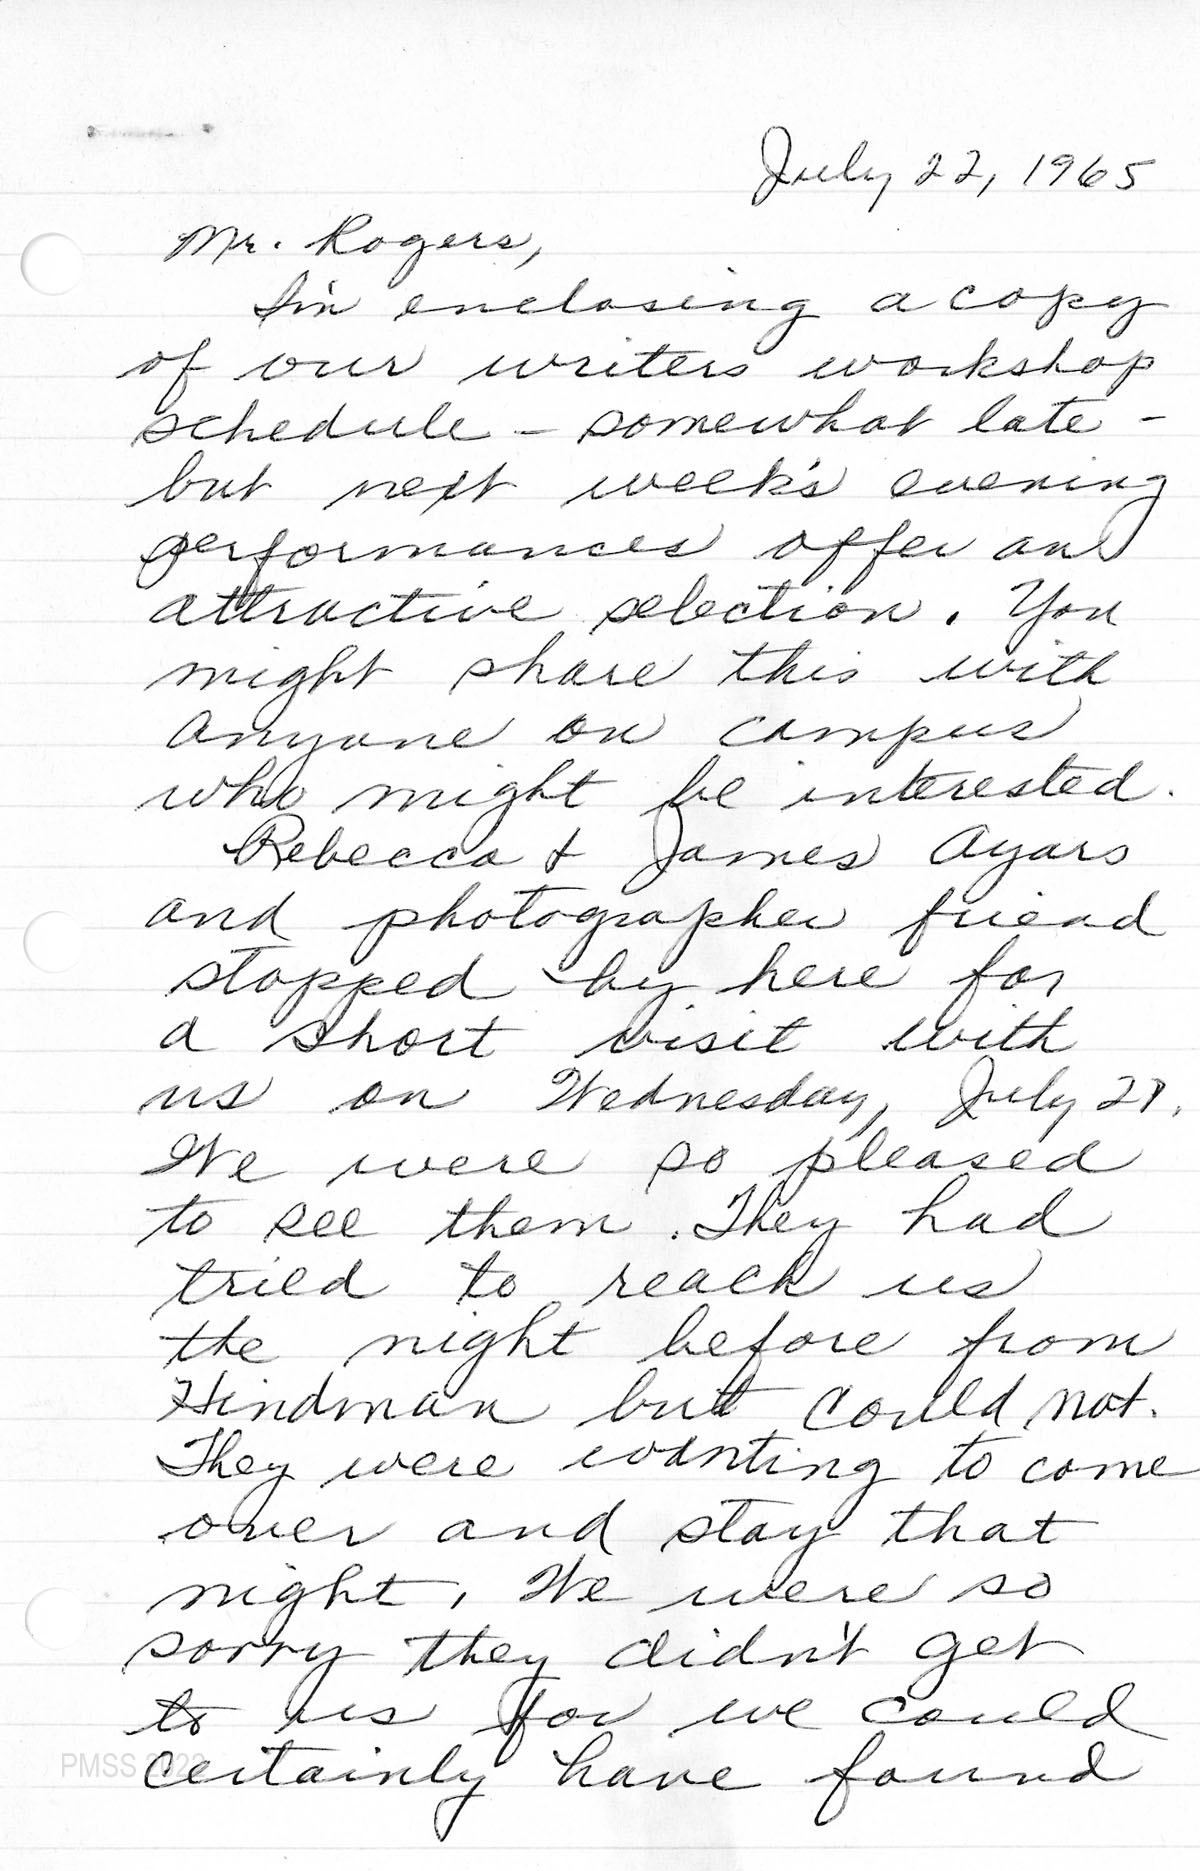 July 22, 1965
Mr. Rogers,
I'm enclosing a copy
of our writers workshop
schedule - somewhat late -
but next week's evening
performances offer an
attractive selection. You
might share this with
anyone on campus
who might be interested.
Rebecca & James Ayars
and photographer friend
stopped by here for
a short visit with
us on Wednesday, July 21.
We were so pleased
to see them. They had
tried to reach us
the night before from
Hindman but could not.
They were wanting to come
over and stay that
night. We were so
sorry they didn't get
to us for we could
certainly have found
PMSS 2022